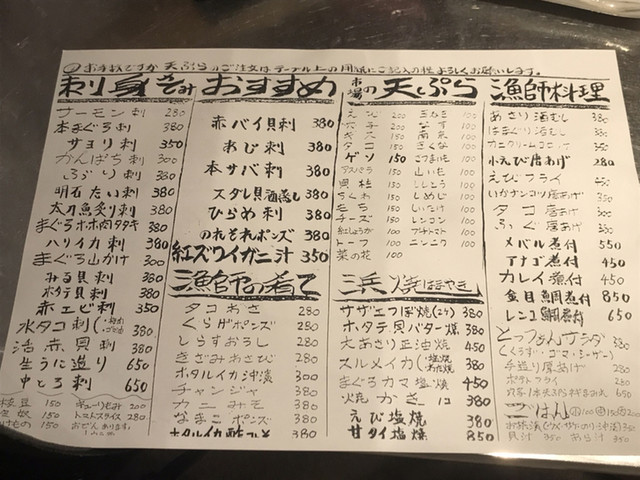 お手数ですが 天ぷらのご注文はテーブル上の用紙にご記入の程よろしくお願いします。
刺身
サーモン刺 280
本まぐろ刺 380
サヨリ刺 350
かんぱち刺 300
ぶり刺 380
明石たい刺 380
太刀魚炙り刺 380
まぐろホホ肉タタキ 380
ハリイカ刺 380
まぐろ山かけ 300
みる貝刺 380
ホタテ貝刺 380
赤エビ刺 350
水タコ刺 380
活赤貝刺 380
生うに造り 650
中とろ刺 650
枝豆 150
キューリもみ 200
トマトスライス 280
おすすめ
赤バイ貝刺 380
あじ刺 380
本サバ刺 380
スダレ貝酒蒸し 380
ひらめ刺 380
のれそれポンズ 380
紅ズワイガニ汁 350
漁師の肴て
タコわさ 280
くらげポンズ 280
しらすおろし 280
きざみわさび 280
ホタルイカ沖漬 300
チャンジャ 380
カニみそ 380
なまこポンズ 380
市場の天ぷら
えび 200
玉ねぎ 100
穴子 200
なす 100
キス 150
南京 100
タコ 150
きくな 100
ゲソ 150
さつまいも 100
アスパラ 150
山いも 100
貝柱 150
ししとう 100
ちくわ 150
しめじ 100
もち 150
しいたけ 100
チーズ 150
レンコン 100
紅しょうが 150
プチトマト 100
トーフ 150
ニンニク 100
菜の花 100
浜焼
サザエつぼ焼(2ケ) 380
ホタテ貝バター焼 380
大あさり正油焼 450
スルメイカ 380
まぐろカマ塩焼 450
焼かき 380
えび塩焼 380
甘タイ塩焼 850
漁師料理
あさり酒むし 380
はまぐり酒むし 380
カニクリームコロッケ
小えび唐あげ 280
えびフライ
いかナンコツ唐あげ 350
タコ唐あげ 300
ふぐ唐あげ 380
メバル煮付 550
アナゴ煮付 450
カレイ煮付 450
金目鯛煮付 850
レンコ鯛煮付 650
とっつぁんサラダ 380
手造り厚あげ 380
ポテトフライ 250
ごはん
貝汁 350
あら汁 350